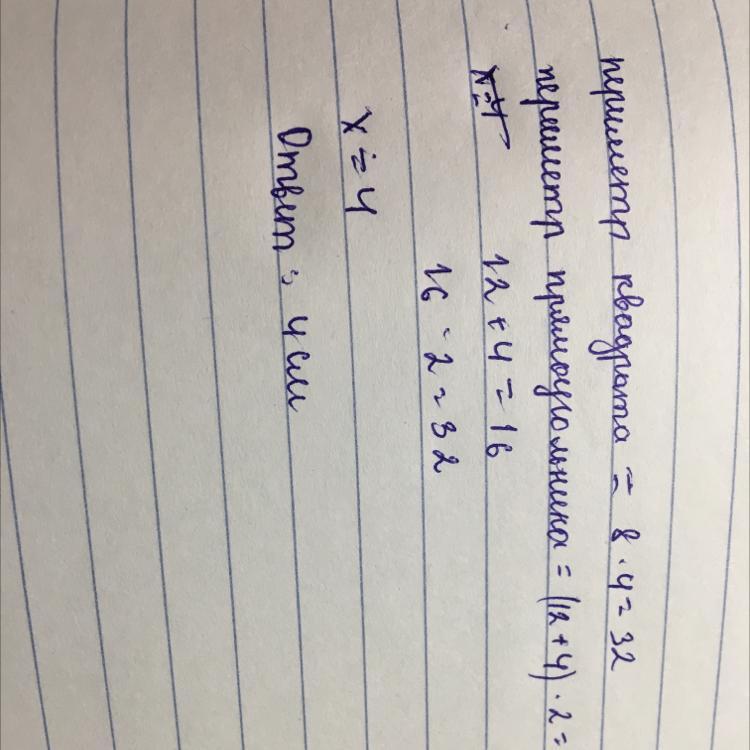 периметр квадрата = 8 · 4 = 32
периметр прямоугольника = (12 + 4) · 2 =
12 + 4 = 16
16 · 2 = 32
x = 4
Ответ: 4 см